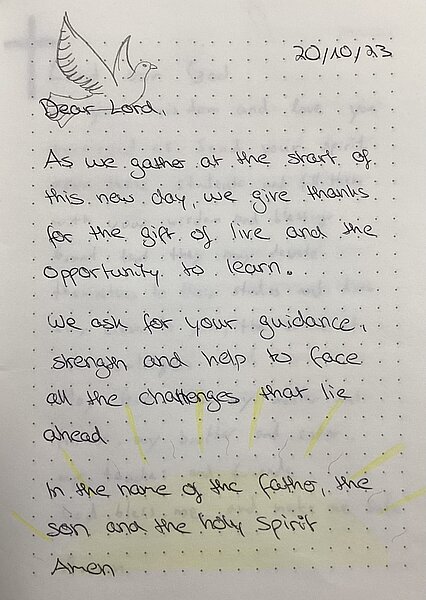 20/10/23
Dear Lord,
As we gather at the start of
this new day, we give thanks
for the gift of live and the
opportunity to learn.
We ask for your guidance,
strength and help to face
all the challenges that lie
ahead
In the name of the father, the
son and the holy spirit
Amen